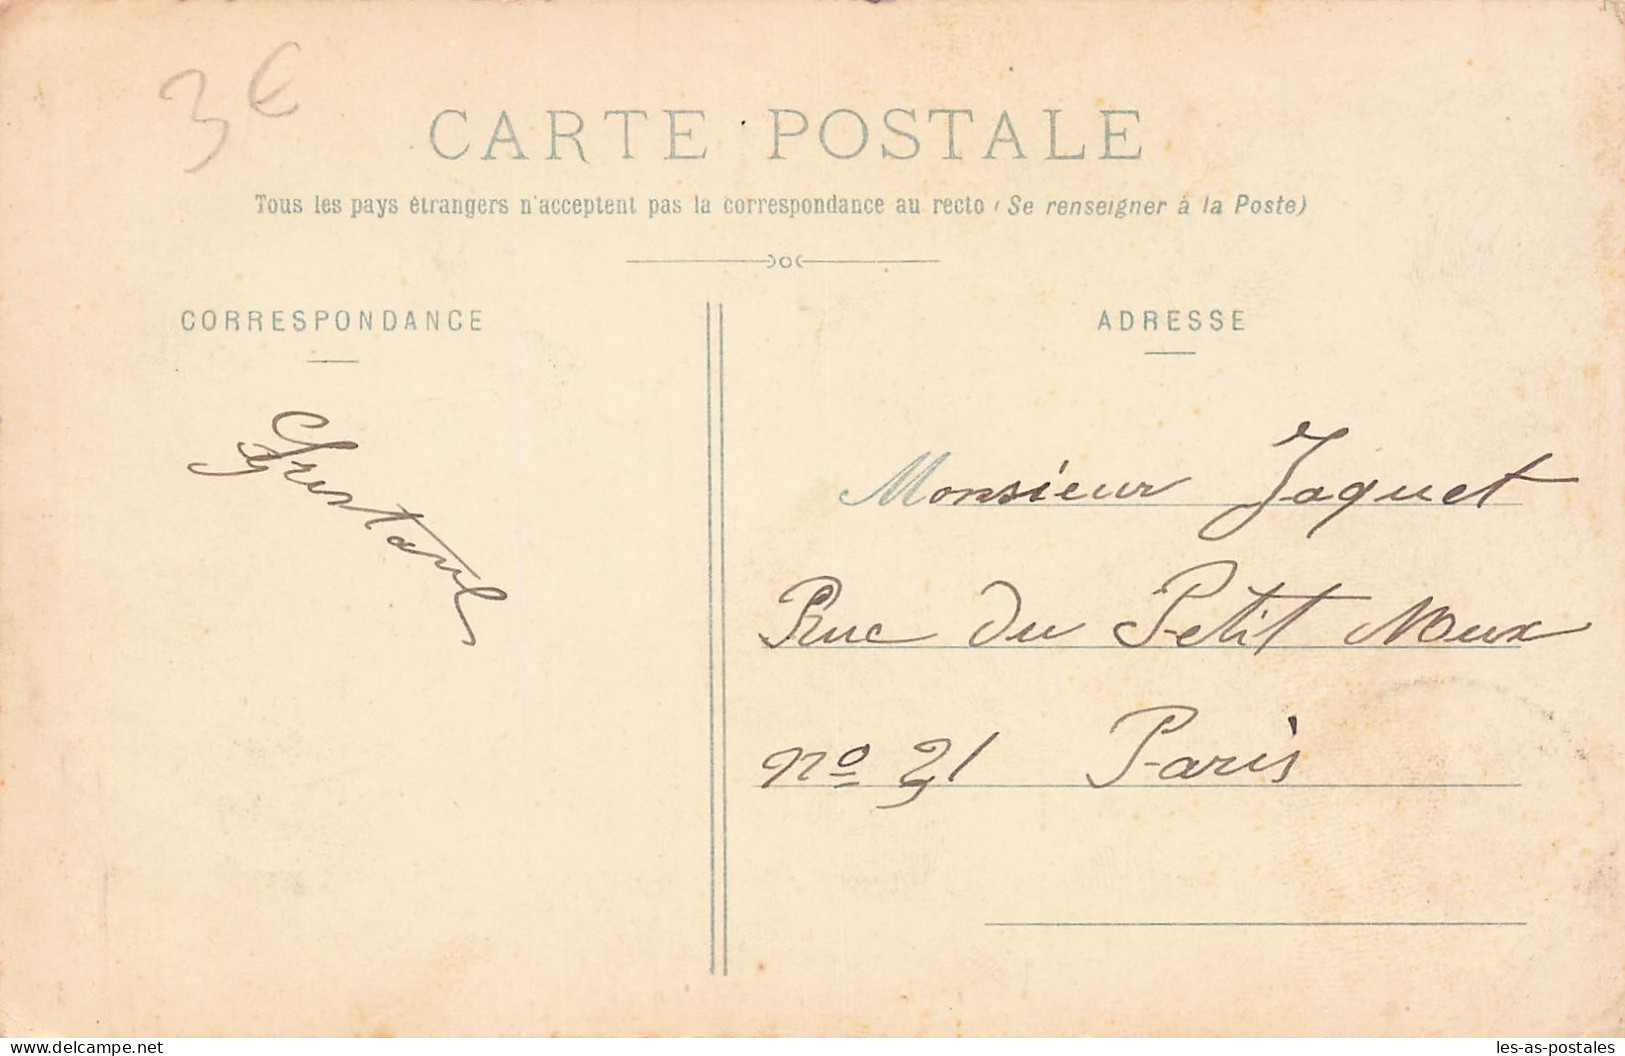 3€
CARTE POSTALE
Tous les pays étrangers n'acceptent pas la correspondance au recto (Se renseigner à la Poste)
CORRESPONDANCE
ADRESSE
Gustave
Monsieur Jaquet
Rue du Petit Mux
no 21 Paris
delcampe.net
les-as-postales